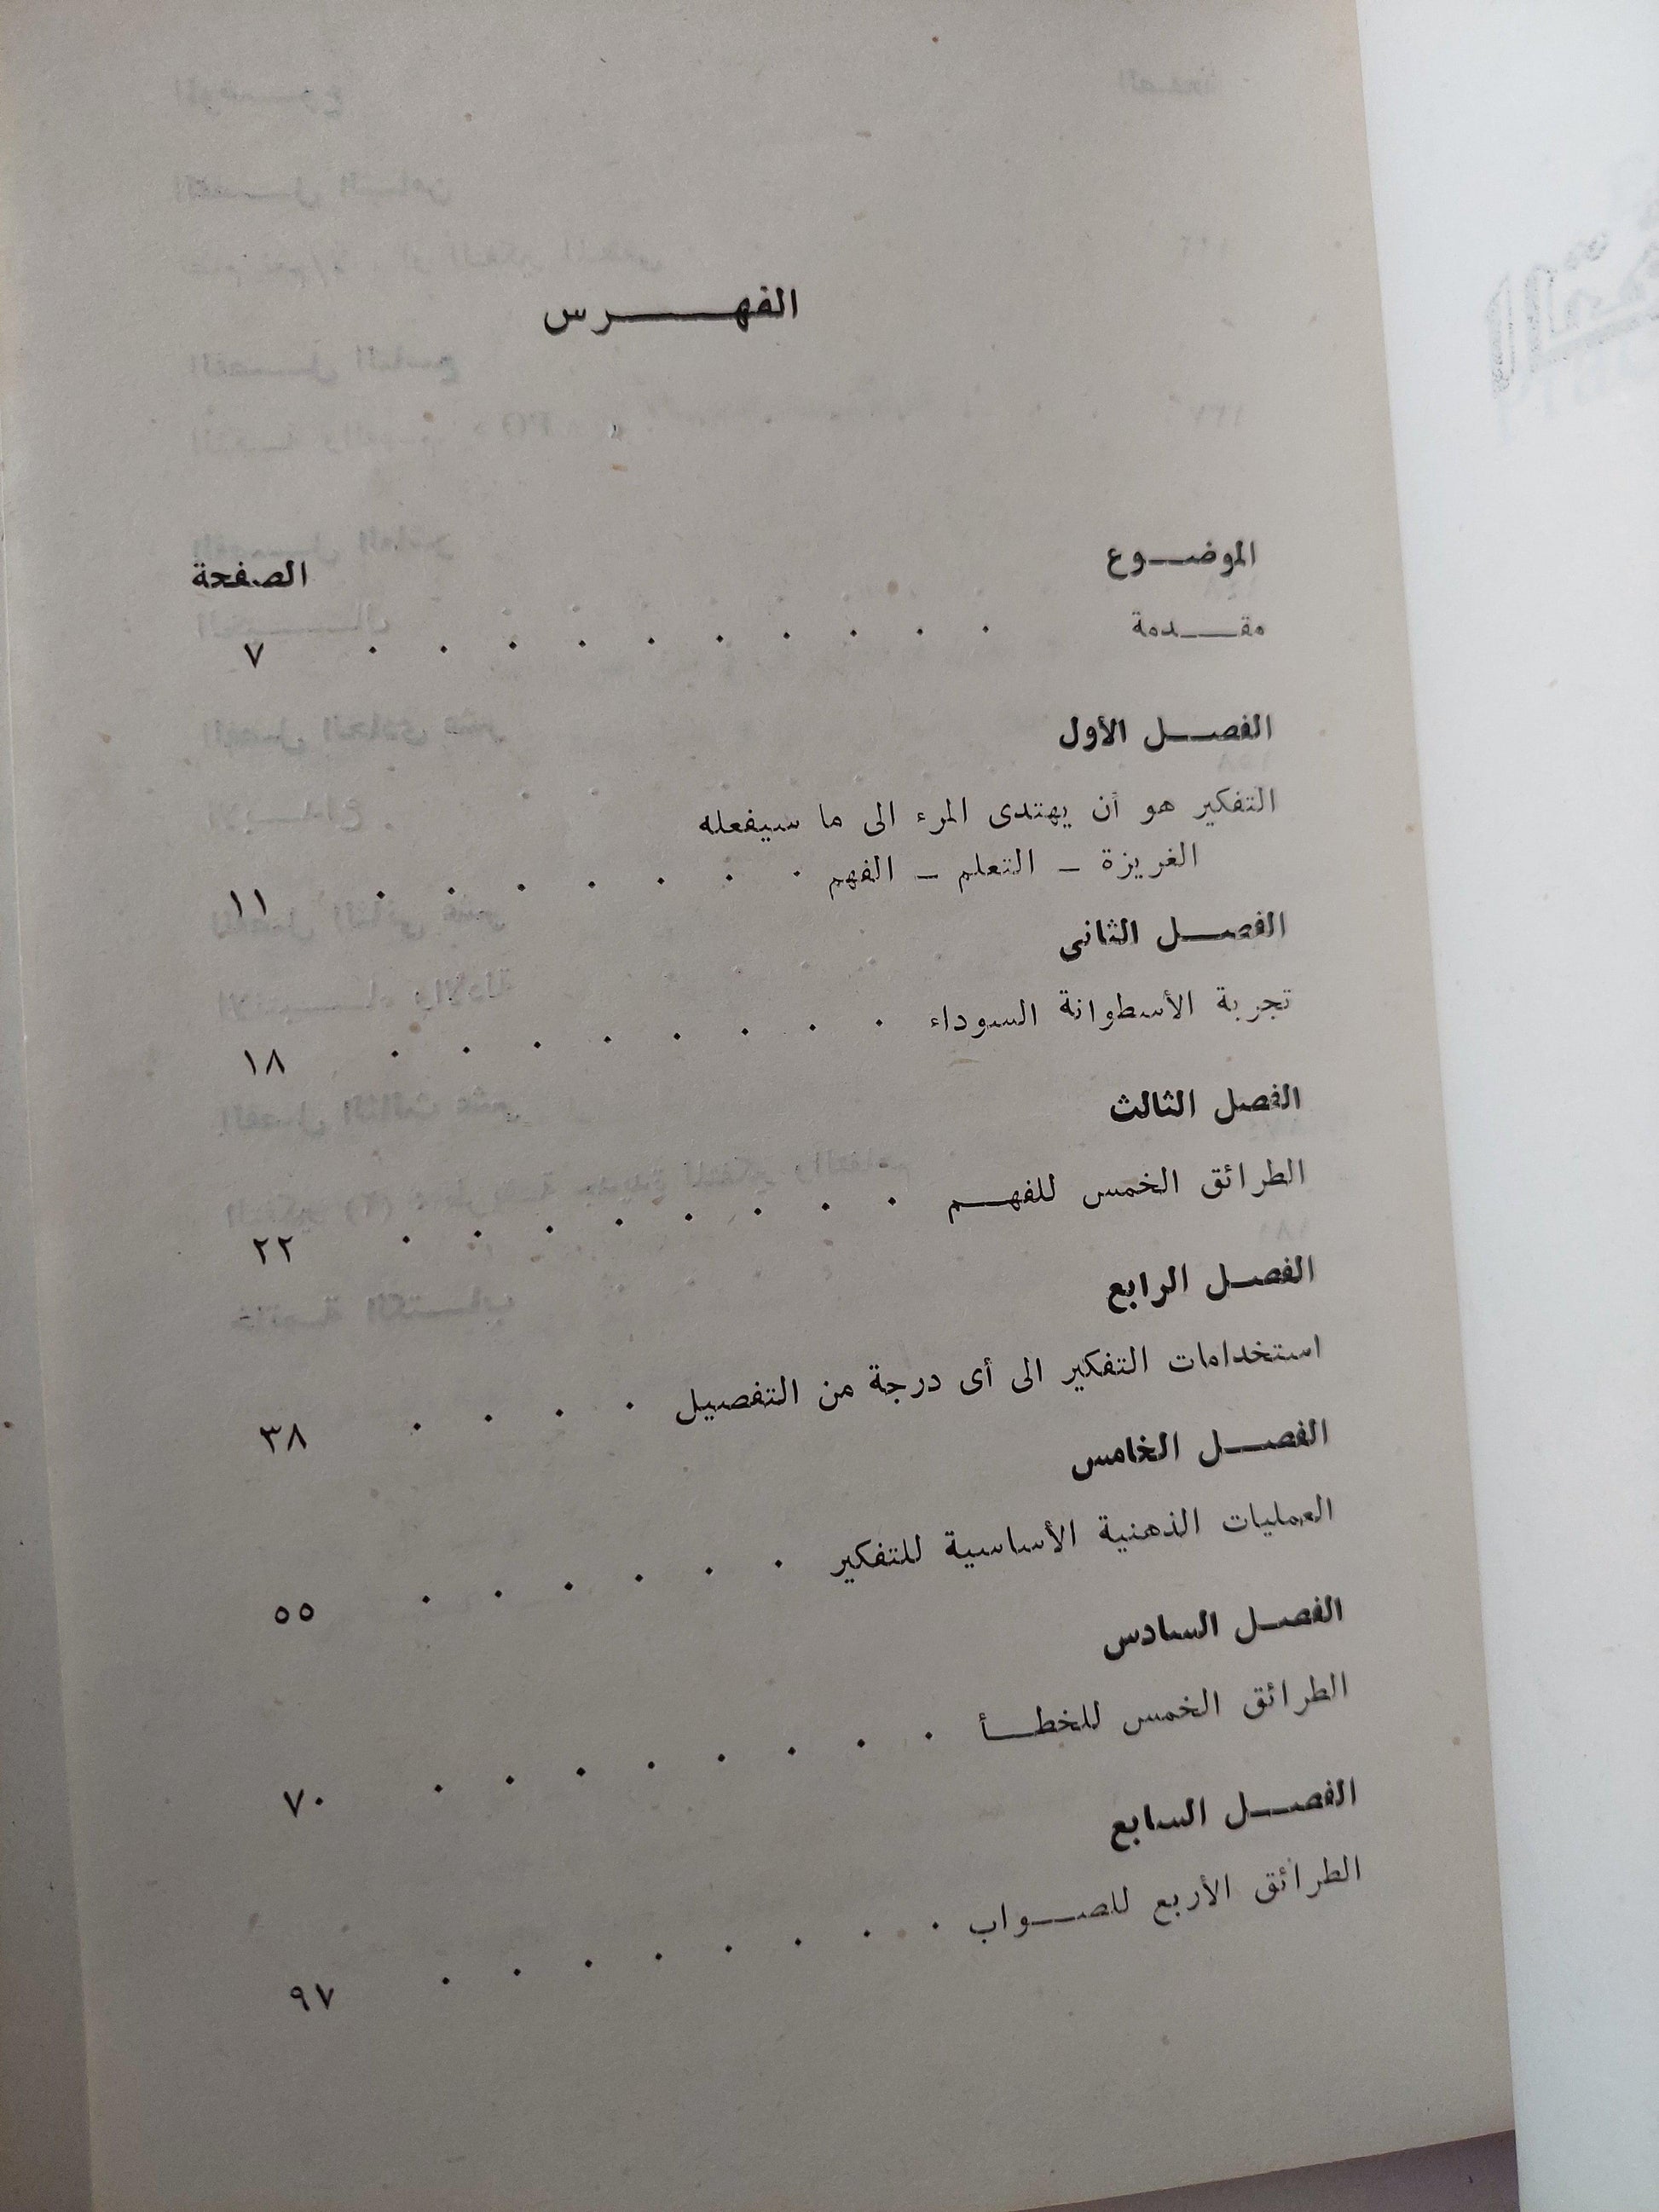 الفهرس
الموضوع الصفحة
مقدمة . . . . . . . . . . ٧
الفصل الأول
التفكير هو أن يهتدى المرء الى ما سيفعله
الغريزة – التعلم – الفهم . . . . . . . ١١
الفصل الثانى
تجربة الأسطوانة السوداء . . . . . . . . ١٨
الفصل الثالث
الطرائق الخمس للفهم . . . . . . . . ٢٢
الفصل الرابع
استخدامات التفكير الى أى درجة من التفصيل . . . . ٣٨
الفصل الخامس
العمليات الذهنية الأساسية للتفكير . . . . . . ٥٥
الفصل السادس
الطرائق الخمس للخطأ . . . . . . . . ٧٠
الفصل السابع
الطرائق الأربع للصواب . . . . . . . . ٩٧